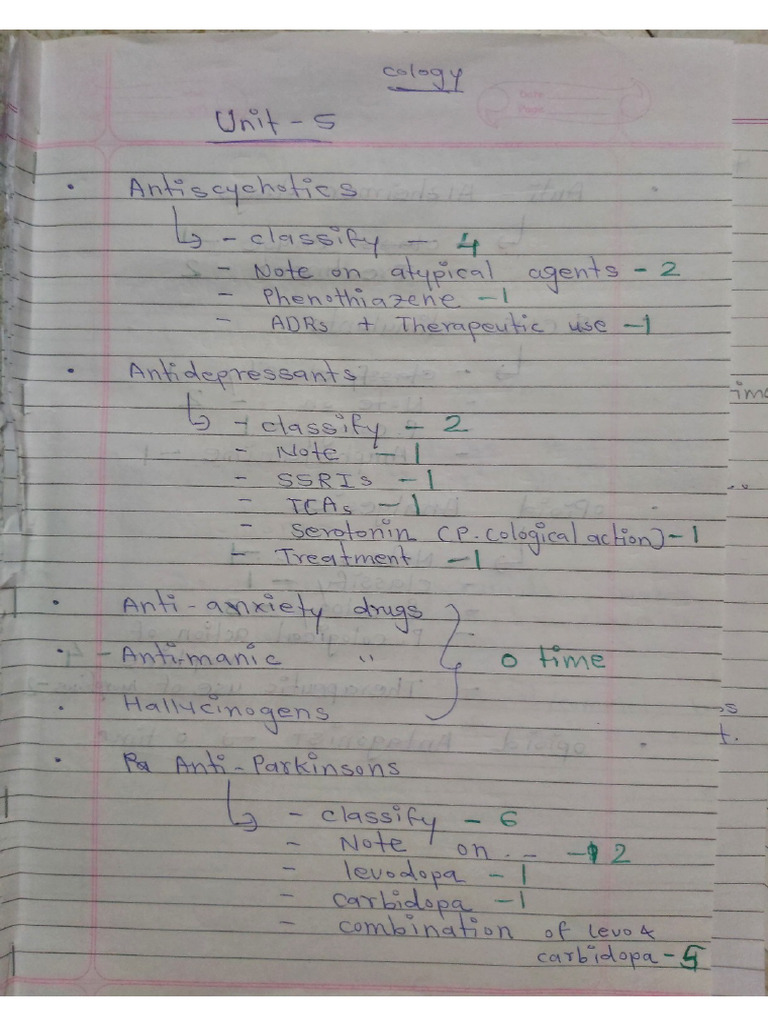 cology
Unit - 5
• Antiscychotics
↳ - classify - 4
- Note on atypical agents - 2
- Phenothiazene - 1
- ADRs + Therapeutic use - 1
• Antidepressants
↳ - classify - 2
- Note - 1
- SSRIs - 1
- TCAs - 1
- Serotonin (P.cological action) - 1
- Treatment - 1
• Anti-anxiety drugs
• - Anti-manic "
0 time
• Hallucinogens
• Anti-Parkinsons
↳ - classify - 6
- Note on - - 2
- levodopa - 1
- carbidopa - 1
- combination of levo &
carbidopa - 5